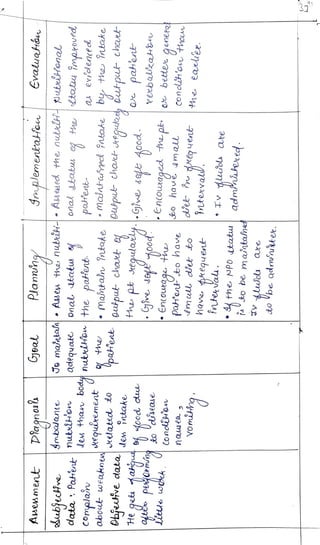 Assessment
Subjective
data : Patient
complain
about weakness
Objective data
He gets fatigue
after performing
little work.
Diagnosis
Imbalance
nutrition
less than body
requirement
related to
less intake
of food due
to disease
condition
nausea,
vomiting.
Goal
To maintain
adequate
nutrition
of the
patient
Planning
• Assess the nutriti-
onal status of
the patient
• Maintain intake
output chart of
the pt regularly.
• Give soft food
• Encourage the
patient to have
small diet to
have frequent
intervals.
• If the NPO status
is to be maintained
IV fluids are
to be administer.
Implementation
• Assessed the nutriti-
onal status of the
patient.
• maintained intake
output chart regularly
• Give soft food.
• Encouraged the pt.
to have small
diet in frequent
intervals.
• IV fluids are
administered.
Evaluation
Nutritional
status improved
as evidenced
by the intake
output chart
or patient
verbalization
or better general
condition than
the earlier.